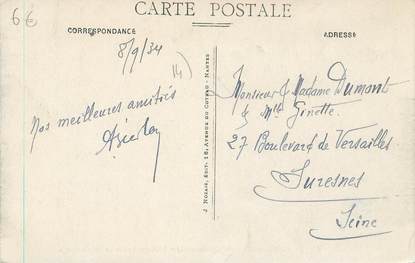 6€
CARTE POSTALE
CORRESPONDANCE
ADRESSE
8/9/34
(4)
Nos meilleures amitiés
J. NOZAIS, EDIT. 18, AVENUE DU COTEAU - NANTES
Monsieur & Madame Dumont
& Mlle Ginette.
27 Boulevard de Versailles
Suresnes
Seine